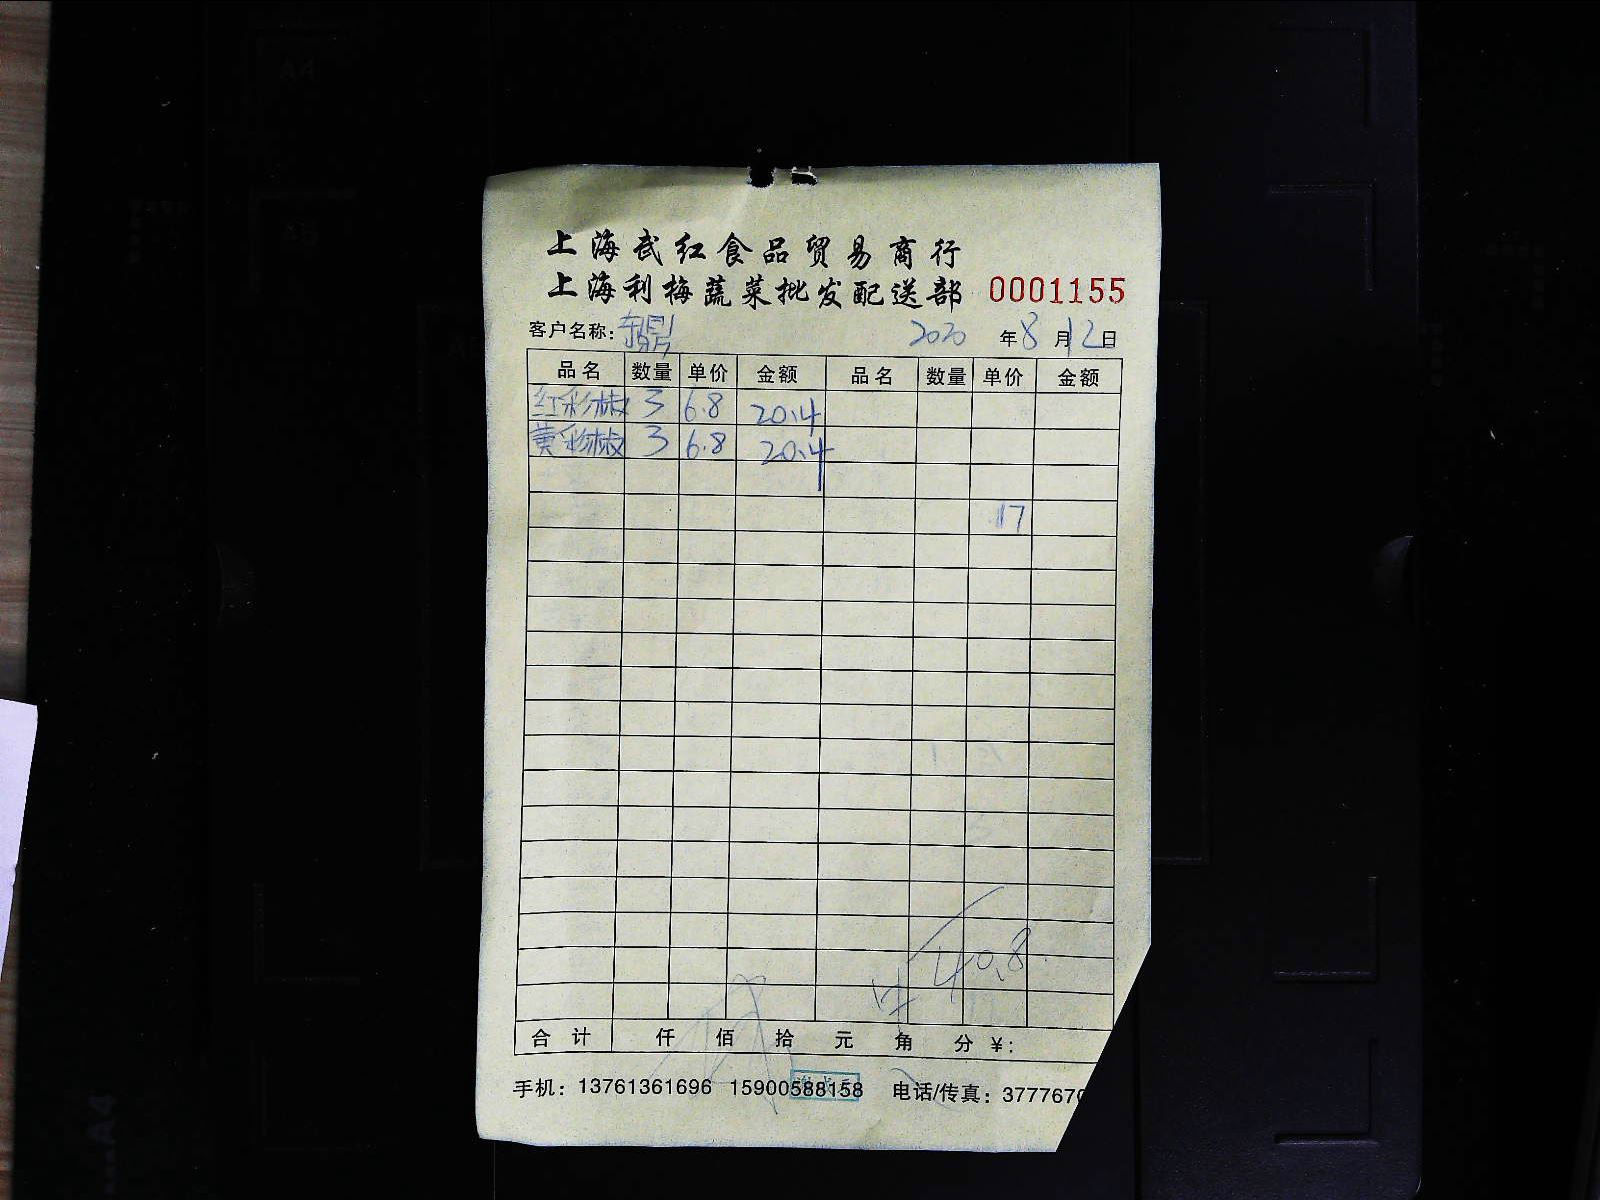 上海武红食品贸易商行
上海利梅蔬菜批发配送部 0001155
客户名称: 东鼎 2020 年 8 月 12 日
品名 数量 单价 金额 品名 数量 单价 金额
红彩椒 3 6.8 20.4
黄彩椒 3 6.8 20.4
17
40.8
合计 仟 佰 拾 元 角 分 ¥:
手机: 13761361696 15900588158 电话/传真: 3777670